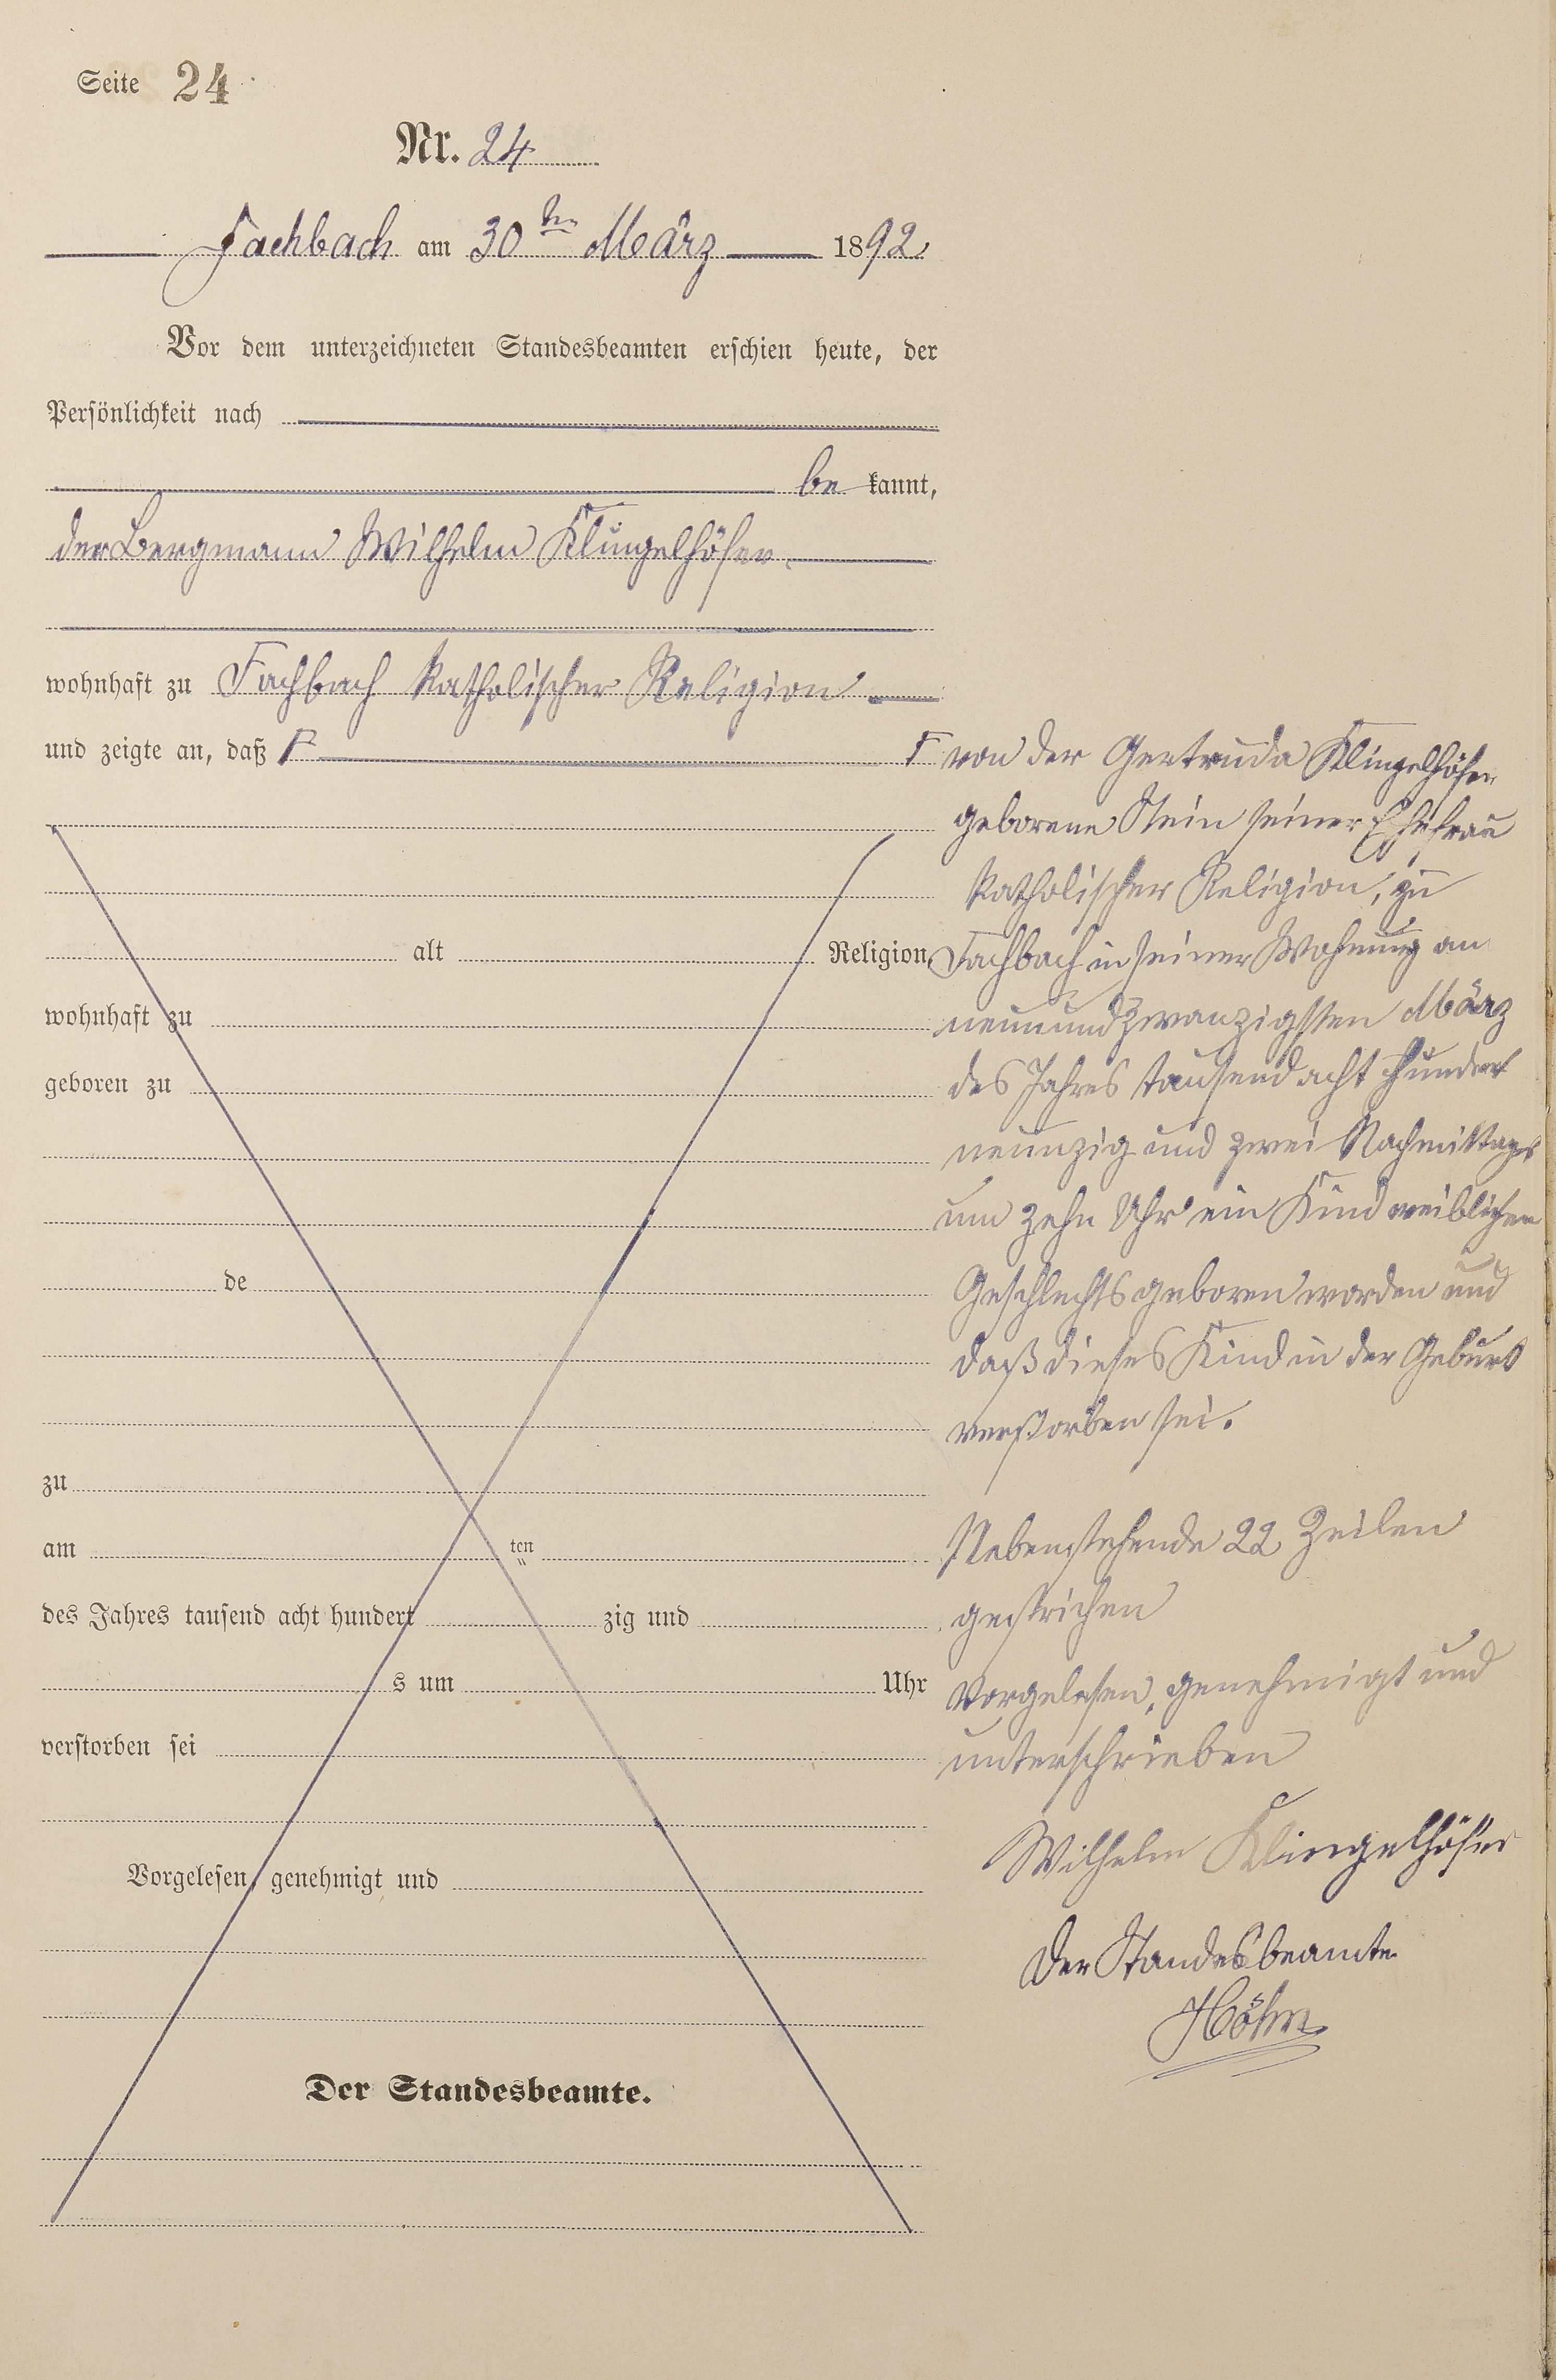 Seite 24
Nr. 24
Fachbach am 30ten März 1892
Vor dem unterzeichneten Standesbeamten erschien heute, der
Persönlichkeit nach
be kannt,
der Bergmann Wilhelm Klingelhöfer
wohnhaft zu Fachbach katholischer Religion
und zeigte an, daß F
alt Religion,
wohnhaft zu
geboren zu
de
zu
am ten
des Jahres tausend acht hundert zig und
s um Uhr
verstorben sei
Vorgelesen, genehmigt und
Der Standesbeamte.
F von der Gertruda Klingelhöfer
geborene Stein seiner Ehefrau
katholischer Religion, zu
Fachbach in seiner Wohnung an
neunundzwanzigsten März
des Jahres tausend acht hundert
neunzig und zwei Nachmittags
um zehn Uhr ein Kind weiblichen
Geschlechts geboren worden und
daß dieses Kind in der Geburt
verstorben sei.
Nebenstehende 22 Zeilen
gestrichen
Vorgelesen, genehmigt und
unterschrieben
Wilhelm Klingelhöfer
Der Standesbeamte
Höhn